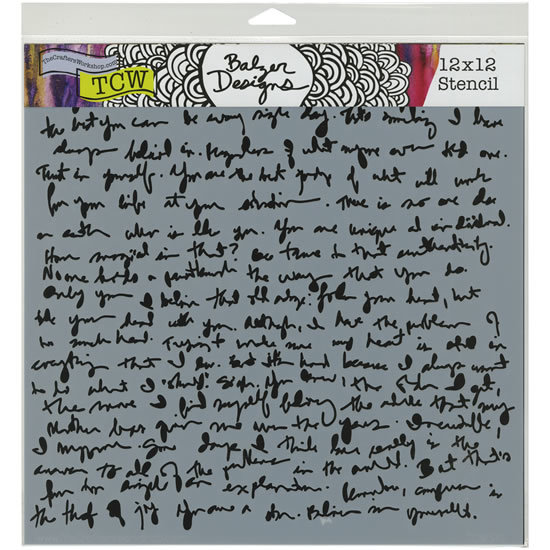 TheCraftersWorkshop.com
TCW
Balzer
Designs
12x12
Stencil
the best you can be every single day. It's something I have
always believed in. Regardless of what anyone ever told me.
Trust in yourself. You are the best judge of what will work
for you life at your. There is no one else
on earth who is like you. You are unique and individual.
How magical is that? Be true to that authenticity.
No one holds a the way that you do.
Only you I believe that old adage: follow your heart, but
take your head with you. Although, I have the problem of
too much head. Trying to make sure my heart is still in
everything that I do. But it's hard because I always want
to do what I "should". Still, you know, the older I get,
the more I find myself the that my
Mother has given me over the years. Incredible,
I suppose. Some days I think love really is the
answer to all of the problems in the world. But that's
for an explanation. Remember, comparison is
the thief of joy. You are a star. Believe in yourself.